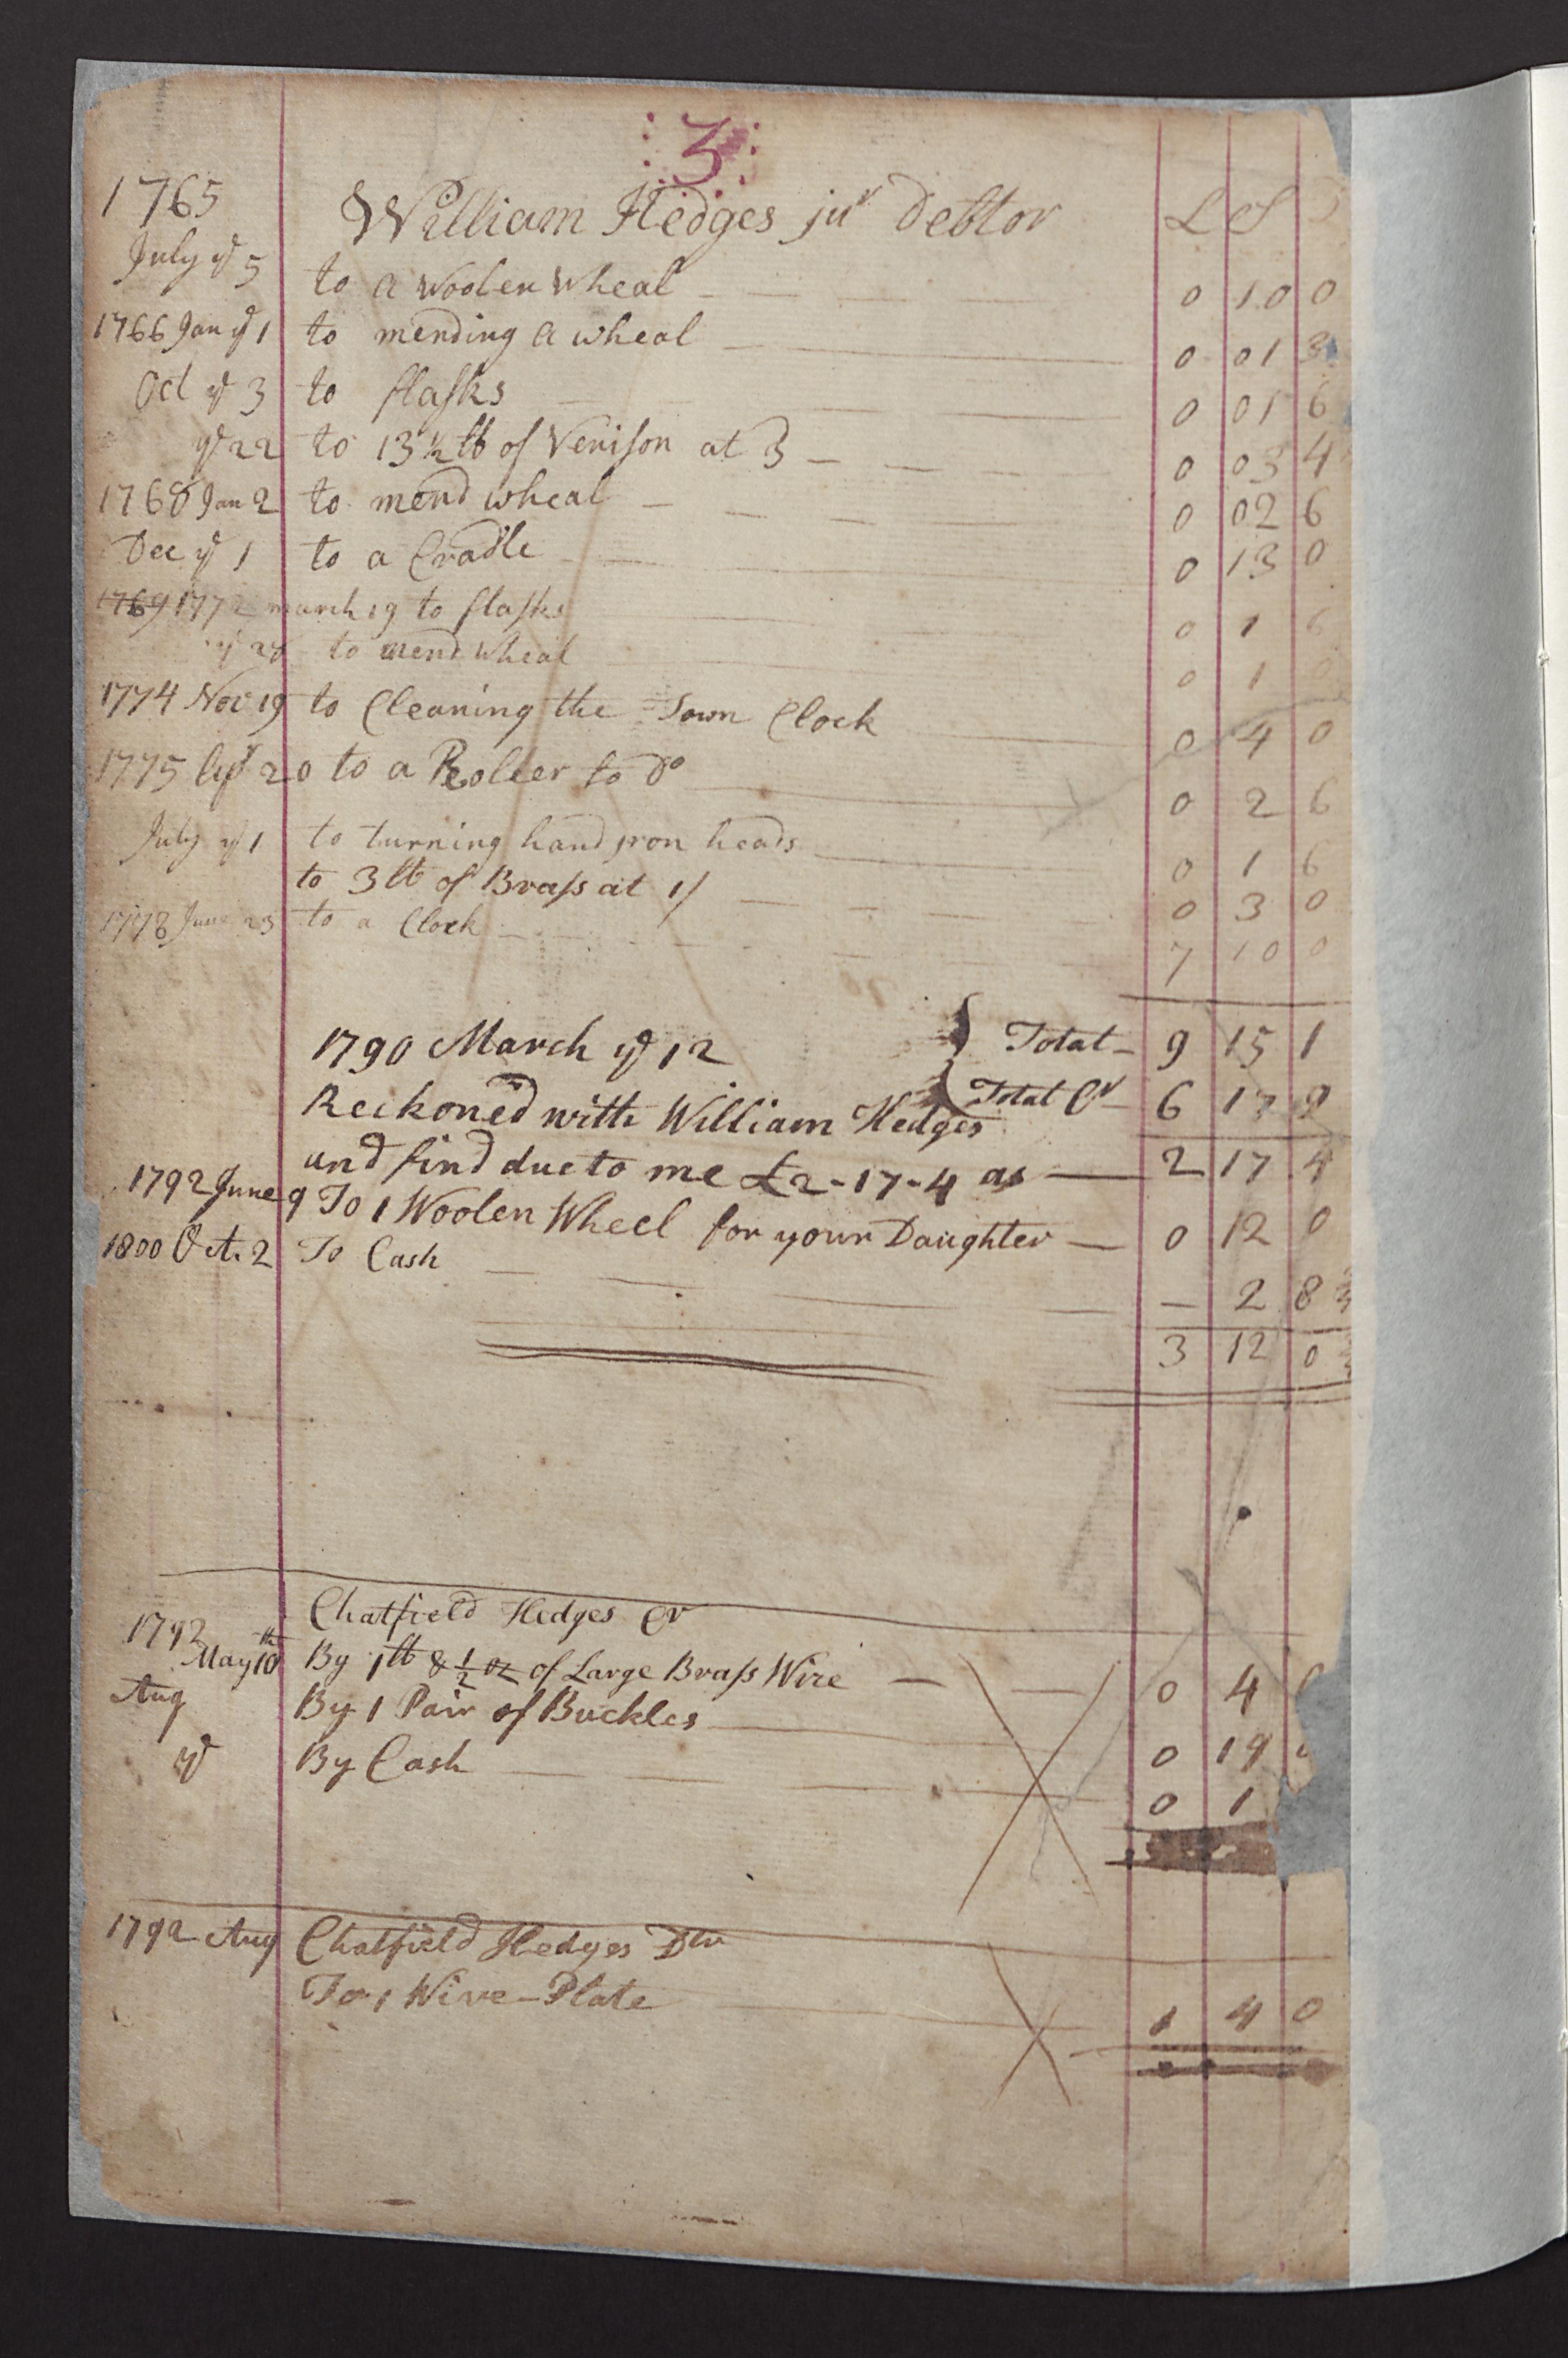 3
1765 William Hedges jur Debtor L S
July ye 5 to a woolen wheal 0 10 0
1766 Jan ye 1 to mending a wheal 0 01 3
Oct ye 3 to flasks 0 01 6
ye 22 to 13 ½ lb of Venison at 3 0 03 4
1768 Jan 2 to mend wheal 0 02 6
Dec ye 1 to a Cradle 0 13 0
1769 1772 march 19 to flasks 0 1 6
ye 28 to mend wheal 0 1 0
1774 Nov 19 to Cleaning the Town Clock 0 4 0
1775 Apr 20 to a Roller to Do 0 2 6
July ye 1 to turning hand jron heads 0 1 6
to 3 lb of Brass at 1/ 0 3 0
1778 June 23 to a Clock 7 10 0
1790 March ye 12 Total 9 15 1
Reckoned with William Hedges Total Cr 6 17 9
and find due to me £2-17-4 as 2 17 4
1792 June 9 To 1 Woolen Wheel for your Daughter 0 12 0
1800 Oct. 2 To Cash — 2 8 3
3 12 0
1792 Chatfield Hedges Cr
May 10th By 1 lb & ½ oz of Large Brass Wire 0 4
Aug By 1 Pair of Buckles 0 19
ye By Cash 0 1
1792 Aug Chatfield Hedges Dtr
To 1 Wire-Plate 1 4 0